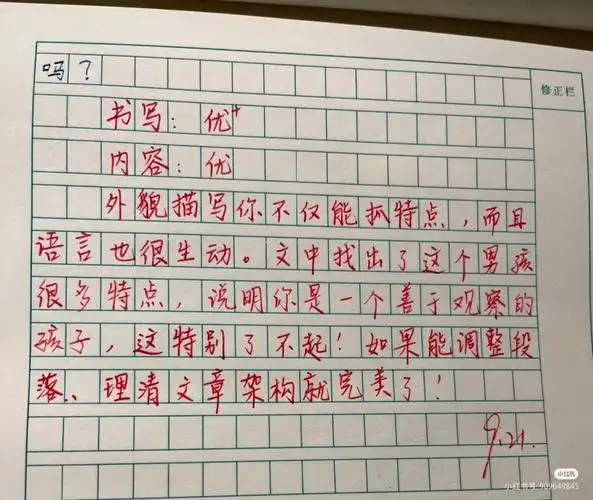 吗？
修正栏
书写：优+
内容：优
外貌描写你不仅能抓特点，而且
语言也很生动。文中找出了这个男孩
很多特点，说明你是一个善于观察的
孩子，这特别了不起！如果能调整段
落、理清文章架构就完美了！
9.21.
小红书
小红书号:909649845